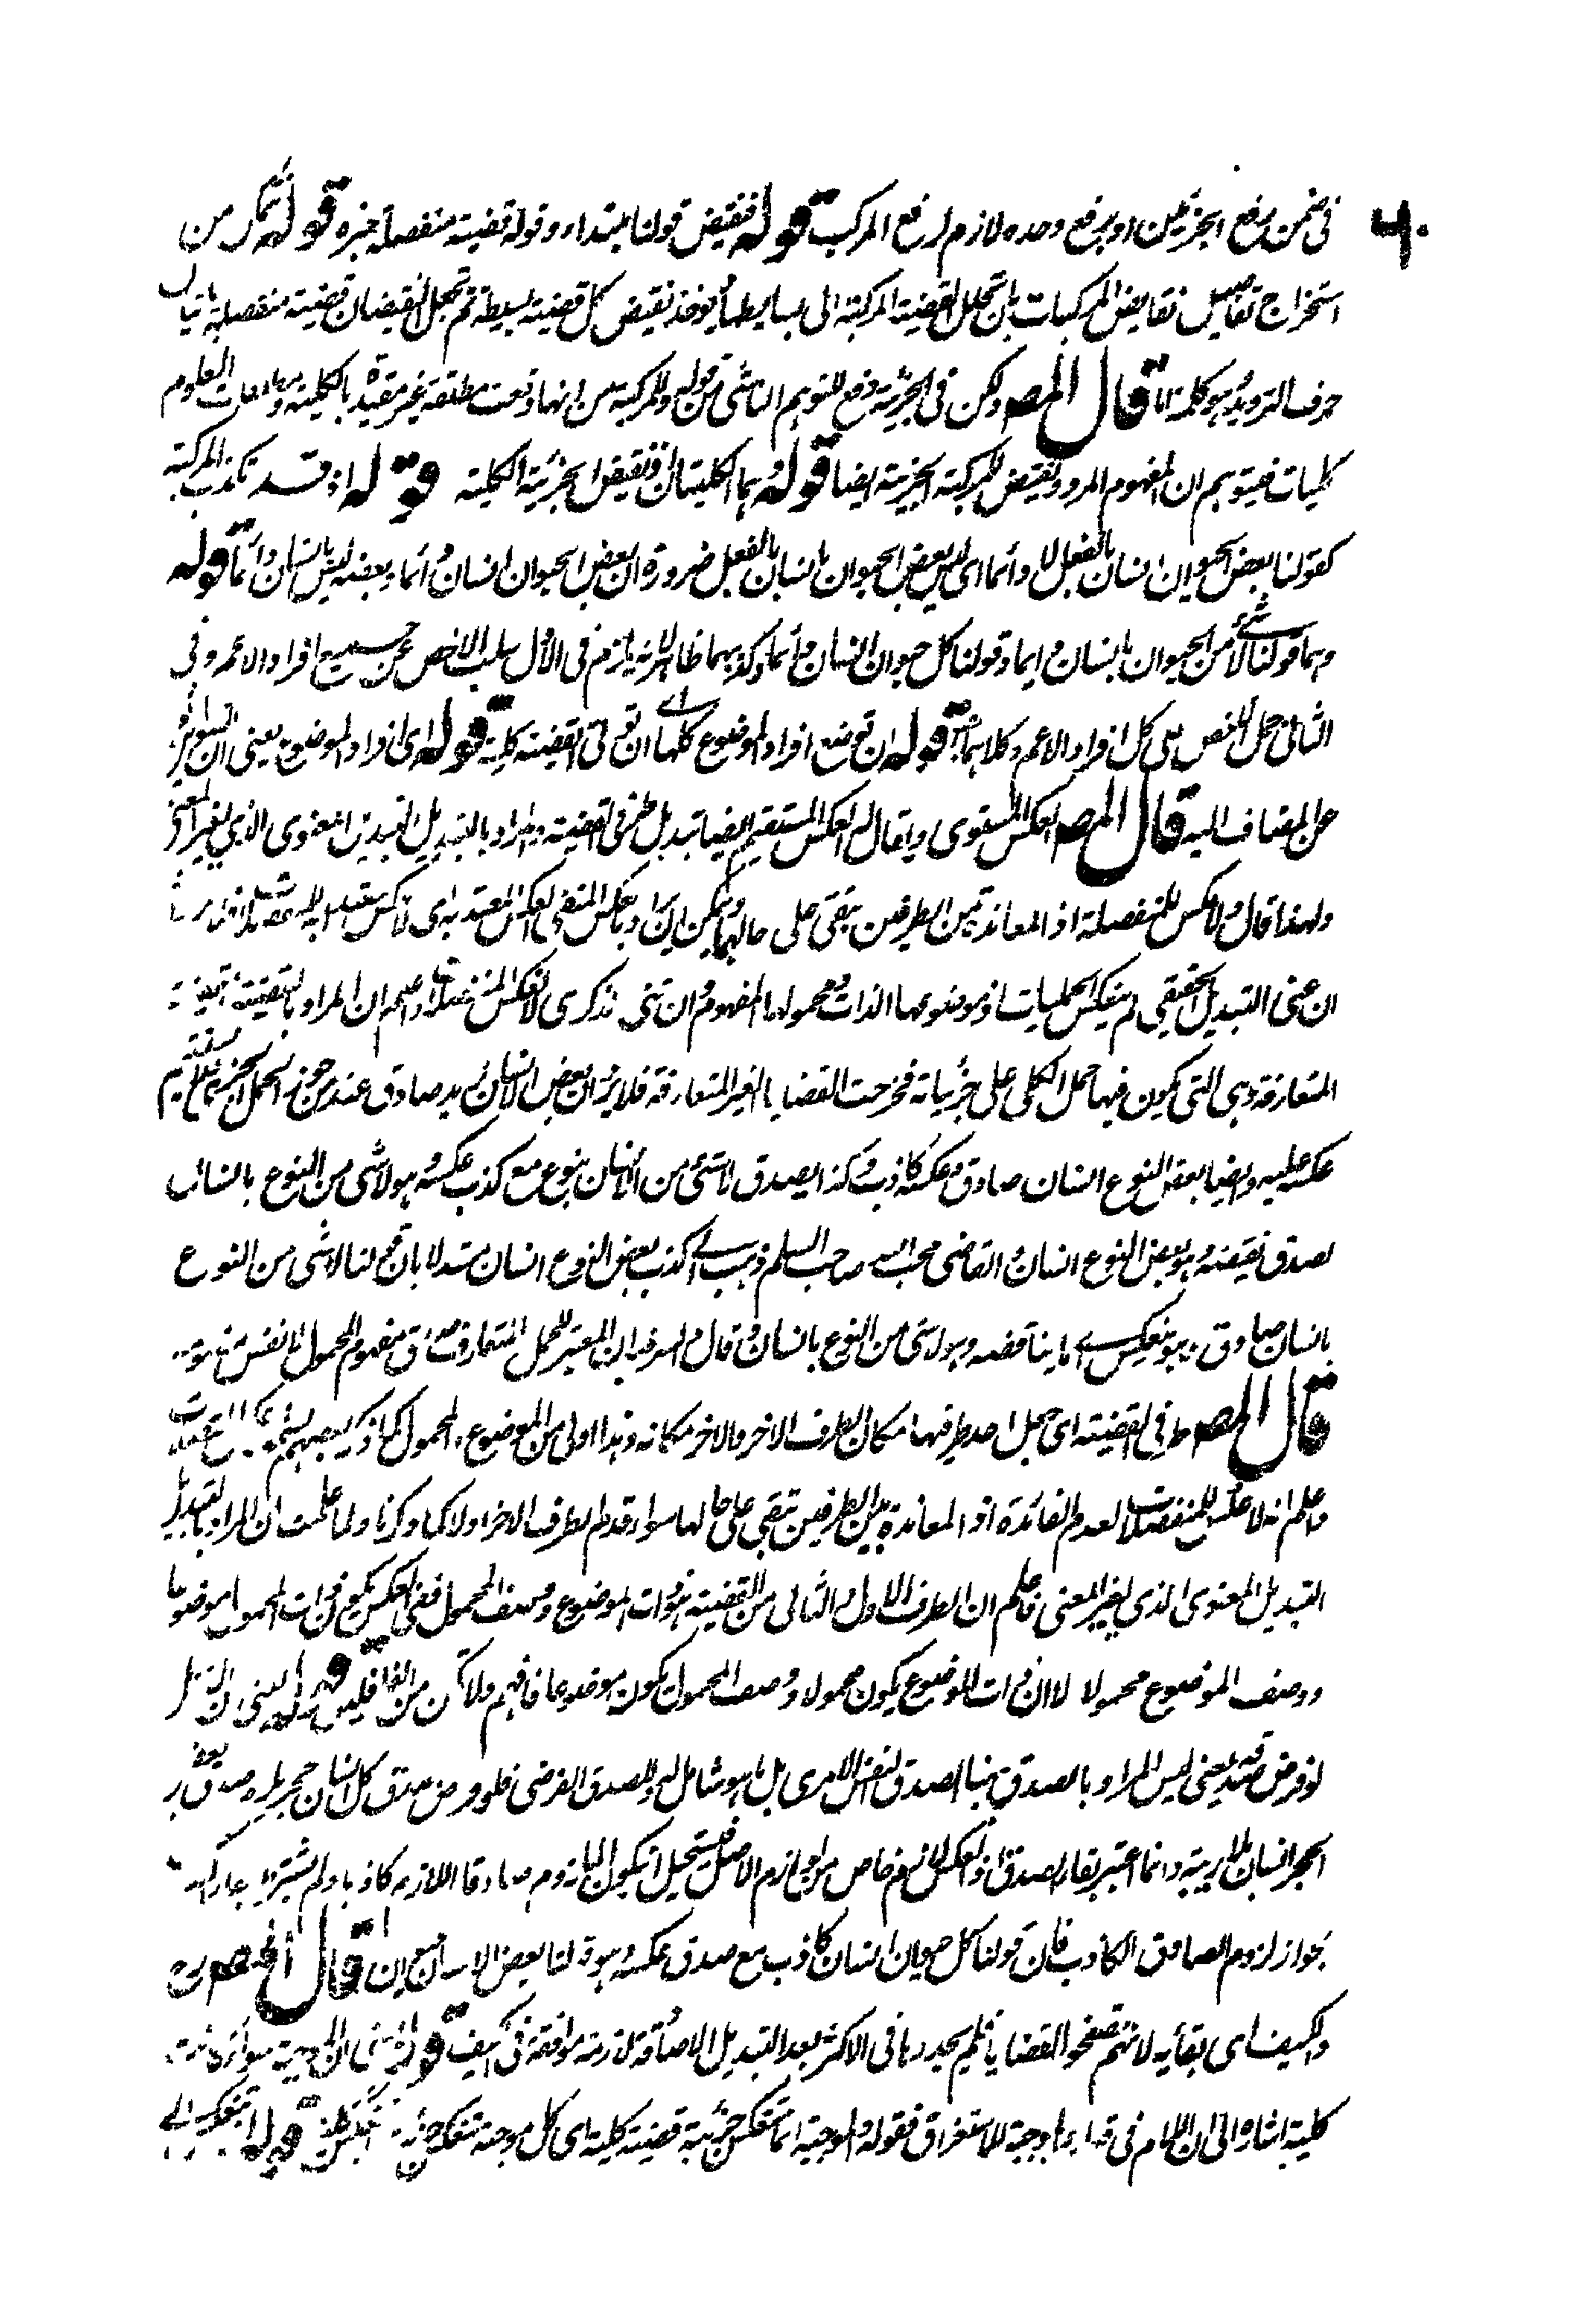 ٦٠
فى ضمن برفع الجزئين او برفع وحده لازم لرفع المركب قوله فنقيض قولنا مبتداء وقوله قضية منفصلة خبره قوله تتمكن من
استخراج تفاصيل نقايض المركبات بان تحلل القضية المركبة الى بسايطها ويوخذ نقيض كل قضية بسيطة ثم تجعل النقيضان قضية منفصلة باتيان
حرف الترديد وهو كلمة اما قال المص ولكن فى الجزئية دفع للتوهم الناشى من قوله وللمركبة من انها وقعت مطلقة غير مقيدة بالكلية العلوم
كليات فيتوهم ان المفهوم المردد نقيض للمركبة الجزئية ايضا قوله وهما الكليتان نقيض الجزئية الكلية قوله اذ قد تكذب المركبة
كقولنا بعض الحيوان انسان بالفعل لا دائما اى ليس بعض الحيوان بانسان بالفعل ضرورة ان بعض الحيوان انسان دائما وبعضه ليس بانسان دائما قوله
وهما قولنا لا شئ من الحيوان بانسان دايما وقولنا كل حيوان انسان دائما وكذبهما ظاهر لانه يلزم فى الاول سلب الاخص عن جميع افراد الاعم وفى
الثانى حمل الاخص على كل افراد الاعم وكلاهما قوله ان توضع افراد الموضوع كلها ان فى القضية كلية قوله اى افراد الموضوع يعنى ان التنوين
عن المضاف اليه قال المص العكس المستوى ويقال له العكس المستقيم ايضا تبديل طرفى القضية والمراد بالتبديل التبديل المعنوى الذى يغير المعنى
ولهذا قال ولا عكس للمنفصلة اذ المعاندة بين الطرفين تبقى على حالها ويمكن ان يراد بالعكس المنفى العكس المعتد به اى لا عكس
ان عنى التبديل الحقيقى لم ينعكس الحمليات اذ موضوعها الذات ومحمولها المفهوم وان عنى الذكرى لانعكس المنفصلات واعلم ان المراد بالقضية
المتعارفة وهى التى يكون فيها حمل الكلى على جزئياته فخرجت القضايا الغير المتعارفة فلا يرد ان بعض الانسان زيد صادق عند من جوز حمل الجزئى
عكسه عليه وايضا بعض النوع انسان صادق وعكسه كاذب وكذا يصدق لا شئ من الانسان بنوع مع كذب عكسه وهو لا شى من النوع بانسان
لصدق نقيضه وهو بعض النوع انسان والقاضى محب الله صاحب السلم ذهب الى كذب بعض النوع انسان مستدلا بان قولنا لا شى من النوع
بانسان صادق وهو ينعكس الى ما يناقضه وهو لا شى من النوع بانسان وقال السر فيه ان المعتبر للحمل المتعارف صدق مفهوم المحمول لا نفس مفهومه
قال المص طرفى القضية اى جعل احد طرفيها مكان الطرف الاخر والاخر مكانه وهذا اولى من الموضوع والمحمول كما ذكر بعضهم
واعلم انه لا عكس للمنفصلات لعدم الفائدة اذ المعاندة بين الطرفين تبقى على حالها سواء قدم الطرف الاخر او لا كما ذكرنا ولما علمت ان المراد بالتبديل
التبديل المعنوى الذى يغير المعنى فاعلم ان الطرف الاول والثانى من القضية هو ذات الموضوع ووصف المحمول ففى العكس يكون ذات المحمول موضوعا
ووصف الموضوع محمولا لا ان ذات الموضوع يكون محمولا ووصف المحمول يكون موضوعا فافهم ولا تكن من الغافلين قوله يعنى ان الاصل
لو فرض صدقه يعنى ليس المراد بالصدق هنا الصدق النفس الامرى بل ما هو شامل له وللصدق الفرضى فلو فرض صدق كل انسان حجر يلزمه صدق بعض
الحجر انسان بلا ريبة وانما اعتبر بقاء الصدق اذ العكس لازم خاص من لوازم الاصل فيستحيل ان يكون الملزوم صادقا واللازم كاذبا ولم يشترط
بجواز لزوم الصادق الكاذب فان قولنا كل حيوان انسان كاذب مع صدق عكسه وهو قولنا بعض الانسان حيوان قال المص
والكيف اى بقائه لانهم تصفحوا القضايا فلم يجدوها فى الاكثر بعد التبديل الا صادقة لازمة موافقة فى الكيف قوله يعنى ان الموجبة سواء كانت
كلية اشارة الى ان اللام فى قوله الموجبة للاستغراق فقوله والموجبة انما تنعكس جزئية قضية كلية اى كل موجبة تنعكس جزئية قوله